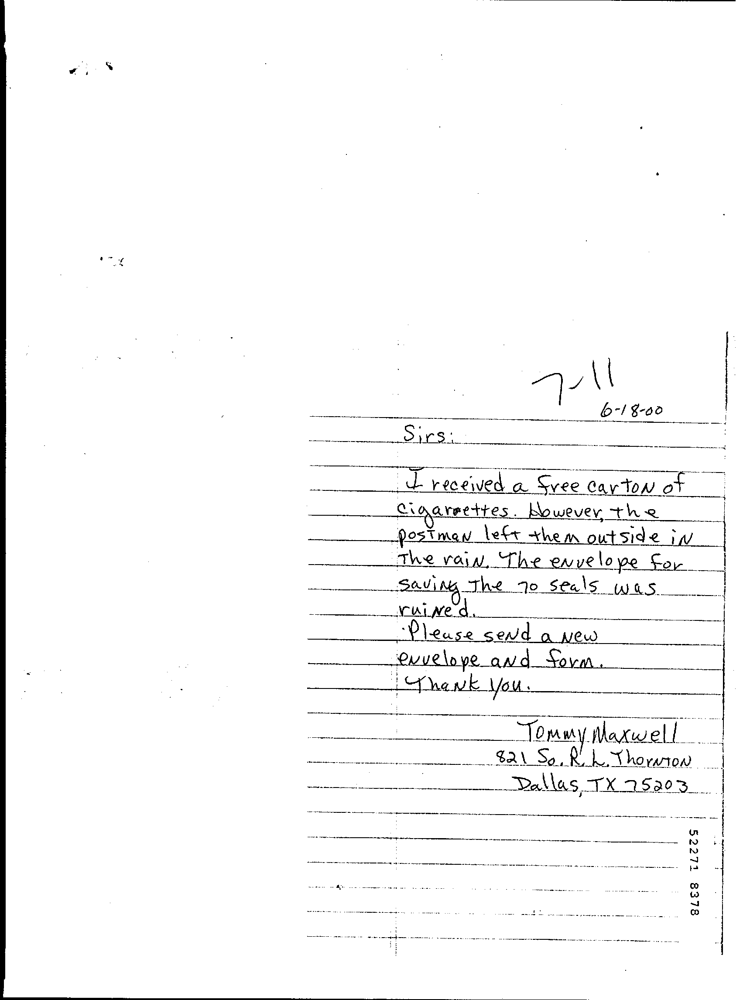 7-11
6-18-00
Sirs:
I received a free carton of
cigarrettes. However, the
postman left them outside in
the rain. The envelope for
saving the 70 seals was
ruined.
Please send a new
envelope and form.
Thank you.
Tommy Maxwell
821 So. R. L. Thornton
Dallas, TX 75203
52271 8378